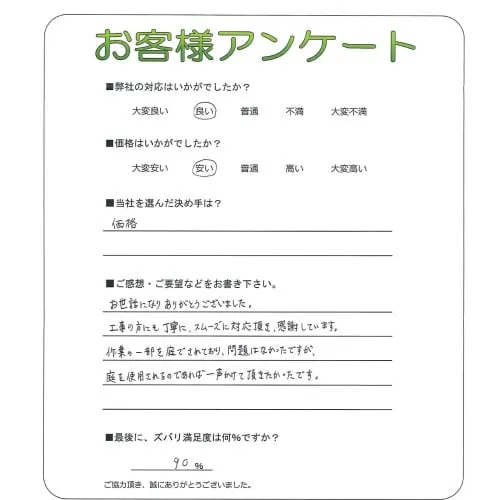 お客様アンケート
■弊社の対応はいかがでしたか？
大変良い 良い 普通 不満 大変不満
■価格はいかがでしたか？
大変安い 安い 普通 高い 大変高い
■当社を選んだ決め手は？
価格
■ご感想・ご要望などをお書き下さい。
お世話になりありがとうございました。
工事の方にも丁寧に、スムーズに対応頂き、感謝しています。
作業の一部を庭でされており、問題はなかったですが、
庭を使用されるのであれば一声かけて頂きたかったです。
■最後に、ズバリ満足度は何%ですか？
90 %
ご協力頂き、誠にありがとうございました。